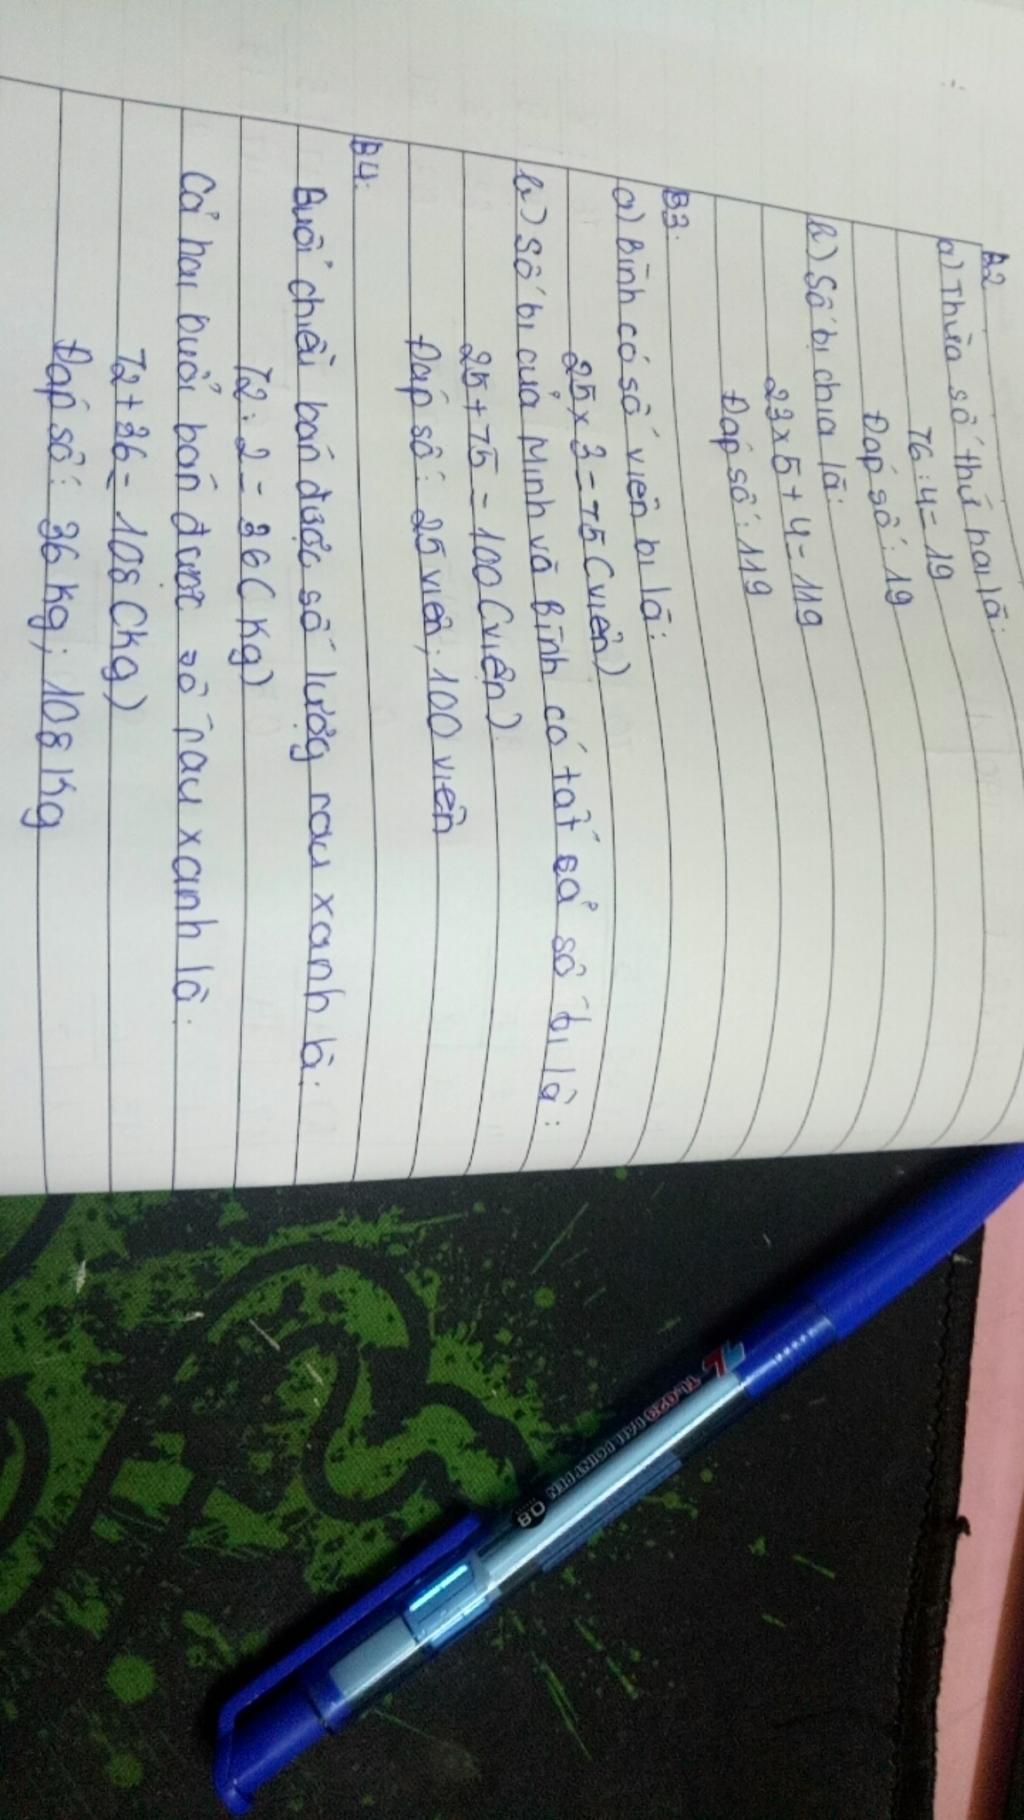 B2
a) Thừa số thứ hai là:
76 : 4 = 19
Đáp số : 19
b) Số bị chia là:
23 x 5 + 4 = 119
Đáp số : 119
B3.
a) Bình có số viên bi là:
25 x 3 = 75 (viên)
b) Số bi của Minh và Bình có tất sả số bi là :
25 + 75 = 100 (viên)
Đáp số : 25 viên; 100 viên
B4:
Buổi chiều bán được số lượng rau xanh là:
72 : 2 = 36 (kg)
Cả hai buổi bán được số rau xanh là:
72 + 36 = 108 (kg)
Đáp số : 36 kg; 108 kg
TL
TL-023 BALL POINT PEN 0.8